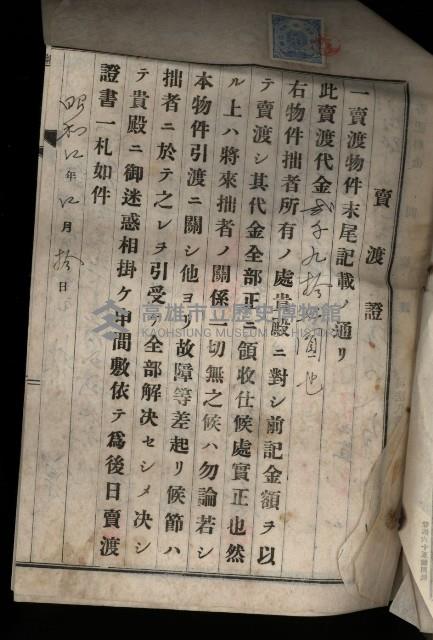 賣渡證
一賣渡物件末尾記載ノ通リ
此賣渡代金貳千九拾圓也
右物件拙者所有ノ處貴殿ニ對シ前記金額ヲ以
テ賣渡シ其代金全部正ニ領收仕候處實正也然
ル上ハ將來拙者ノ關係一切無之候ハ勿論若シ
本物件引渡ニ關シ他ヨリ故障等差起リ候節ハ
拙者ニ於テ之レヲ引受ケ全部解决セシメ决シ
テ貴殿ニ御迷惑相掛ケ申間敷依テ爲後日賣渡
證書一札如件
昭和 年 月拾日
高雄市立歷史博物館
KAOHSIUNG MUSEUM OF HISTORY